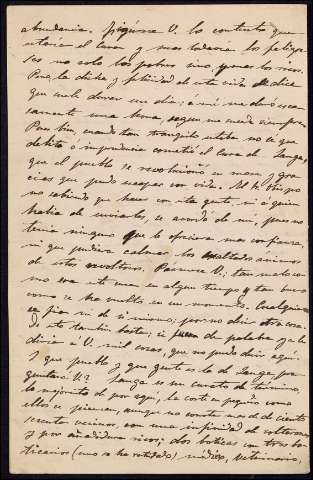 abundancia. Figúrese V. lo contento que
estaria el Cura y mas todavia los feligre-
ses no solo los pobres sino los ricos.
Pero, la dicha y felicidad de esta vida se dice
que suele durar un dia; á mí me duró esca-
samente una hora, segun me sucede siempre.
Pues bien, cuando tan tranquilo estaba no sé que
debilito ó imprudencia cometió el Cura de Langa,
que el pueblo se revolucionó en masa y gra-
cias que pudo escapar con vida. El Sr. Obispo
no sabiendo que hacer con esta gente, ni á quien
habia de enviarles, se acordó de mí, pues no
tenia ninguno que le ofreciera mas confianza,
ni que pudiera calmar los exaltados animos
de estos revoltosos. Pásmese V.: tan malo co-
mo era este cura en algun tiempo y tan bueno
como se ha vuelto en un momento. Cualquiera
se fia ni de si mismo; por no decir otra cosa.
De esto tambien basta; si fuera de palabra ya le
diria á V. mil cosas, que no puedo decir aquí.
Y que pueblo y que gente es la de Langa, pre-
guntará V.? Langa es un curato de término,
la mayorito de por aquí, la corte en pequeño como
ellos se piensan, aunque no consta mas de de ciento
sesenta vecinos, con una infinidad de solterones
y por añadidura ricos; dos boticas con tres bo-
ticarios (uno se ha retirado) médico, Veterinario,